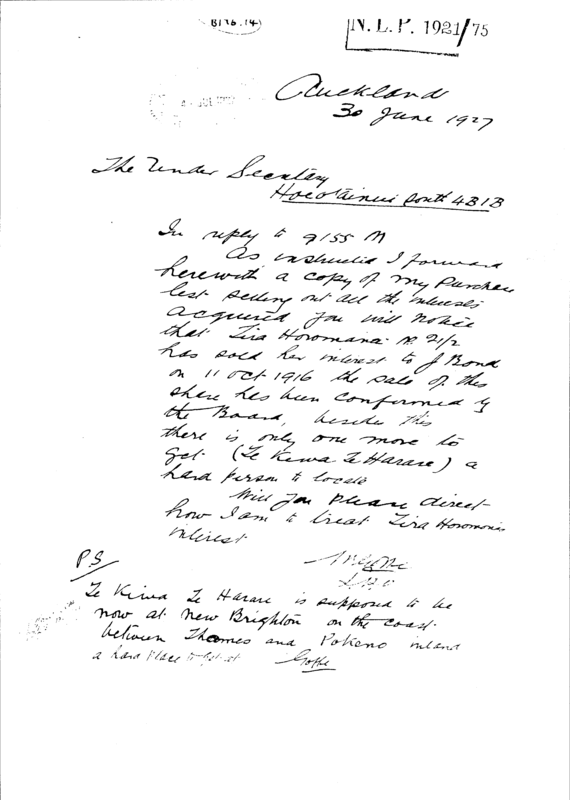 N. L. P. 1921/75
Auckland
30 June 1927
The Under Secretary
Hoeotainui South 4B1B
In reply to 9155 M
As instructed I forward
herewith a copy of my Purchase
list setting out all the interests
acquired you will notice
that Tira Horomana
has sold her interest to J Bond
on 11 Oct 1916 the sale of this
share has been confirmed by
the Board, besides this
there is only one more to
get (Te Kiwa Te Harare) a
hard person to locate
Will you please direct
how I am to treat Tira Horomona's
interest
P.S
Te Kiwa Te Harare is supposed to be
now at New Brighton on the coast
between Thames and Pokeno inland
a hard Place to get at